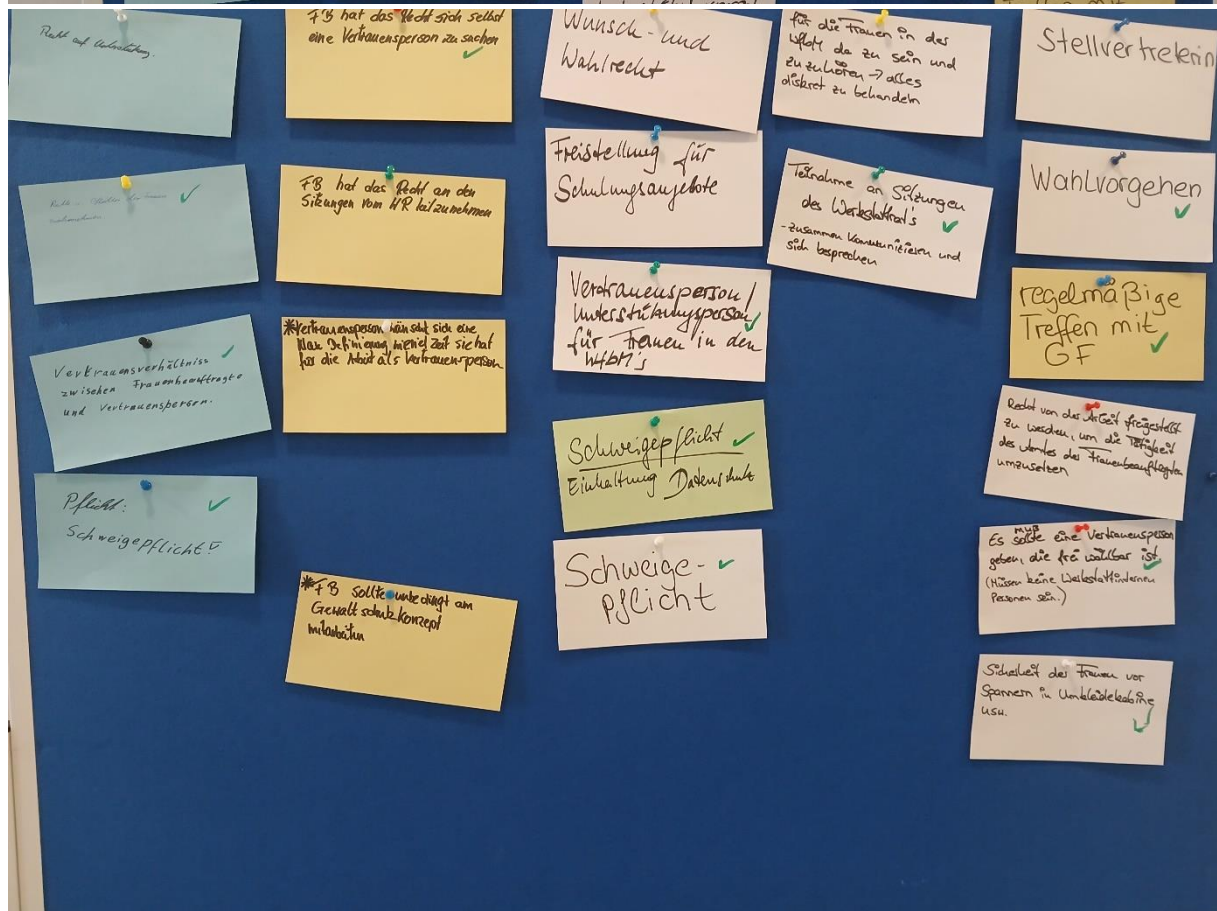 Recht auf Unterstützung.
Vertrauensverhältniss
zwischen Frauenbeauftragte
und Vertrauensperson.
Pflicht:
Schweigepflicht!
FB hat das Recht sich selbst
eine Vertrauensperson zu suchen
FB hat das Recht an den
Sitzungen vom WR teilzunehmen
*Vertrauensperson wünscht sich eine
klare Definierung wieviel Zeit sie hat
für die Arbeit als Vertrauensperson
*FB sollte unbedingt am
Gewaltschutzkonzept
mitarbeiten
Wunsch- und
Wahlrecht
Freistellung für
Schulungsangebote
Vertrauensperson/
Unterstützungsperson
für Frauen in den
WfbM's
Schweigepflicht
Einhaltung Datenschutz
Schweige-
pflicht
für die Frauen in der
WfbM da zu sein und
zuzuhören → alles
diskret zu behandeln
Teilnahme an Sitzungen
des Werkstattrat's
- zusammen kommunizieren und
sich besprechen
Stellvertreterin
Wahlvorgehen
regelmäßige
Treffen mit
GF
Recht von der Arbeit freigestellt
zu werden, um die Tätigkeit
des Amtes der Frauenbeauftragten
umzusetzen
muß
Es sollte eine Vertrauensperson
geben, die frei wählbar ist
(Müssen keine Werkstattinternen
Personen sein.)
Sicherheit der Frauen vor
Spannern in Umkleidekabine
usw.